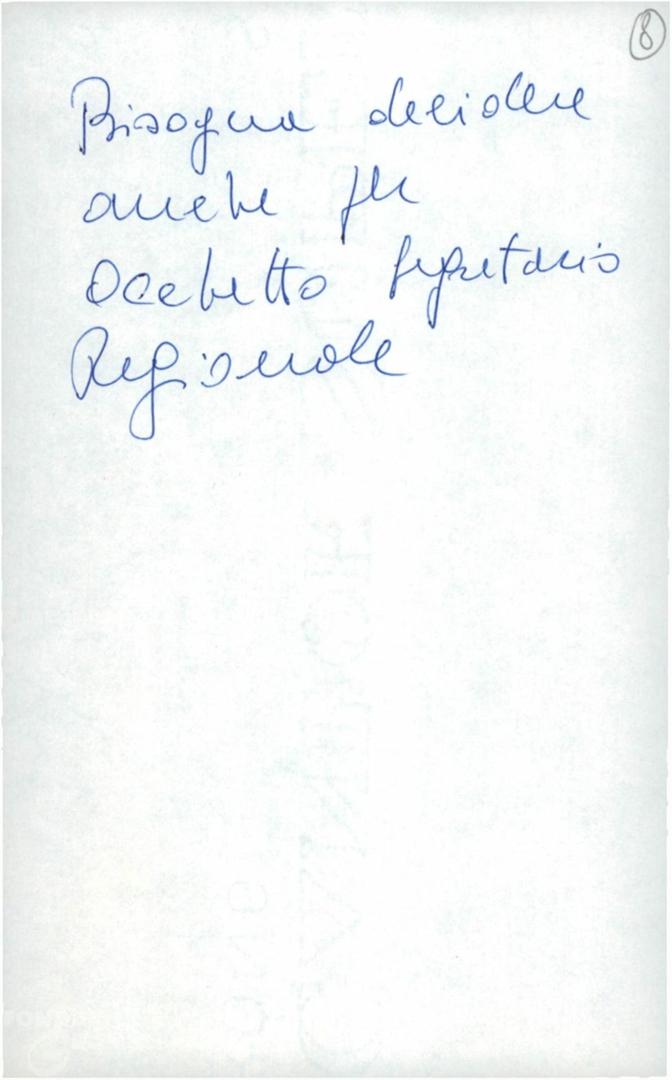 8
Bisogna decidere
anche per
Occhetto segretario
Regionale